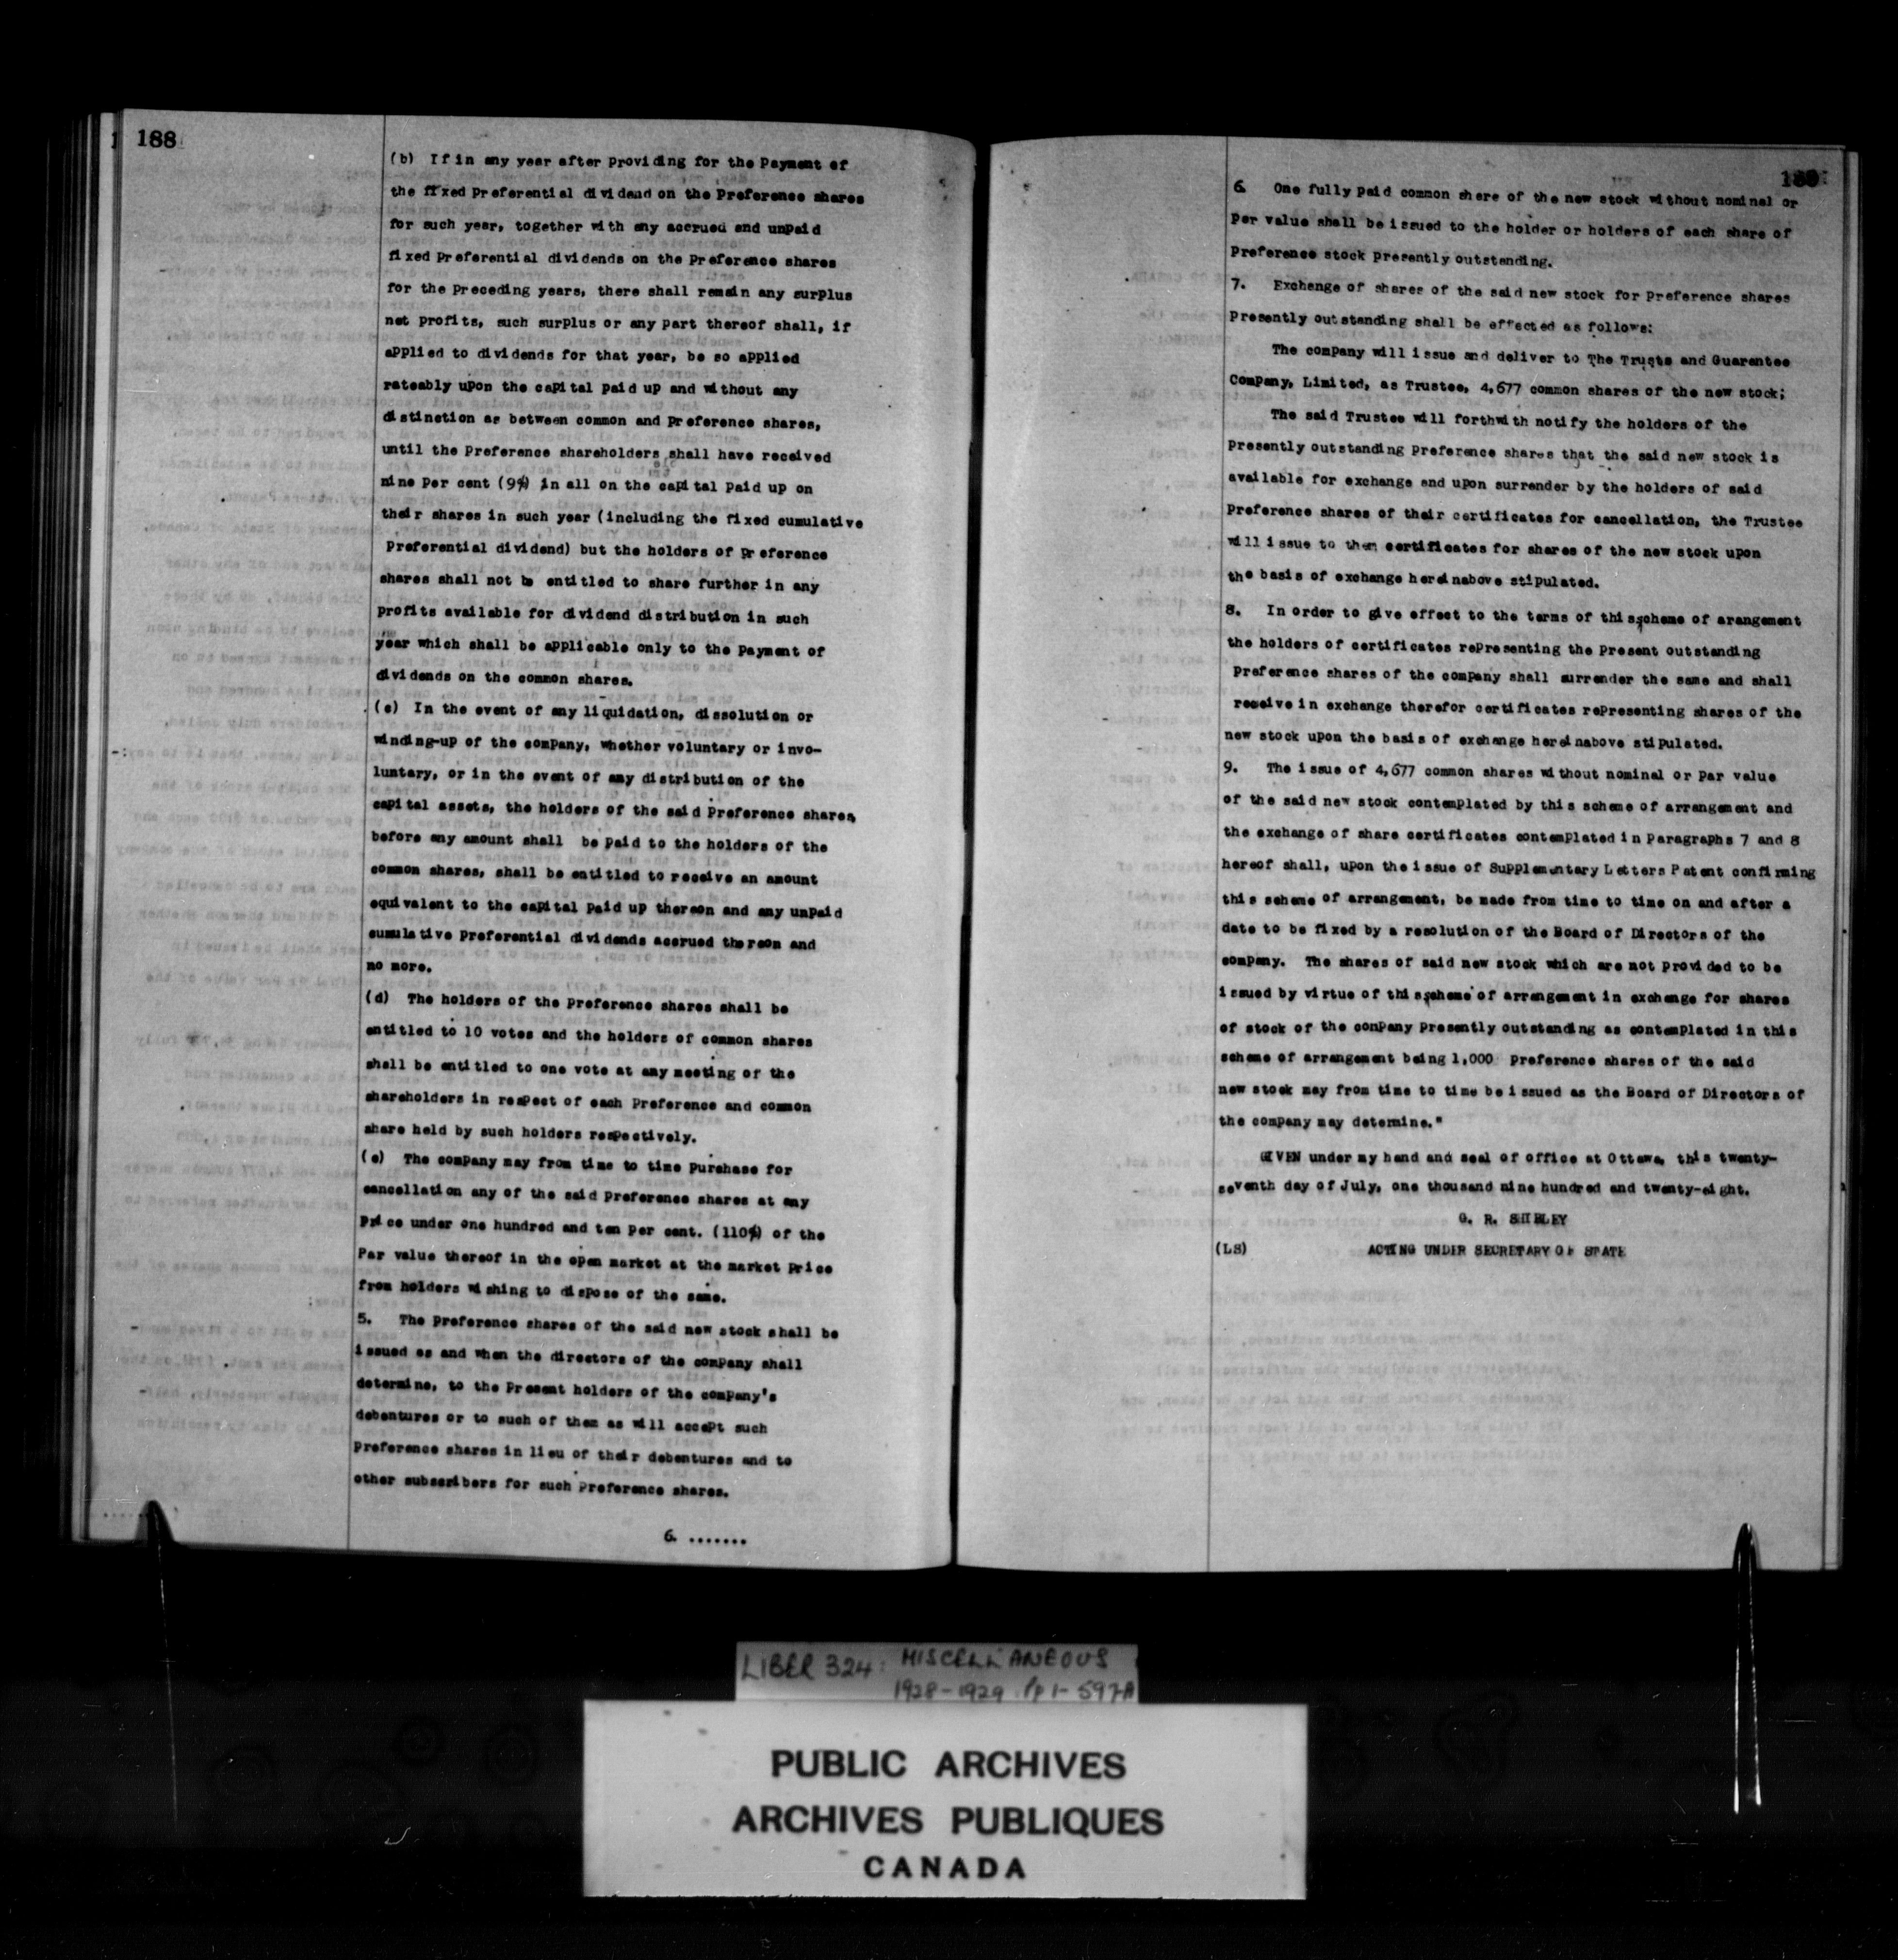 188
(b) If in any year after providing for the Payment of
the fixed Preferential dividend on the Preference shares
for such year, together with any accrued and unpaid
fixed Preferential dividends on the Preference shares
for the Preceding years, there shall remain any surplus
net profits, such surplus or any part thereof shall, if
applied to dividends for that year, be so applied
rateably upon the capital paid up and without any
distinction as between common and Preference shares,
until the Preference shareholders shall have received
nine Per cent (9%) in all on the capital Paid up on
their shares in such year (including the fixed cumulative
Preferential dividend) but the holders of Preference
shares shall not be entitled to share further in any
profits available for dividend distribution in such
year which shall be applicable only to the Payment of
dividends on the common shares.
(c) In the event of any liquidation, dissolution or
winding-up of the company, whether voluntary or invo-
luntary, or in the event of any distribution of the
capital assets, the holders of the said Preference shares,
before any amount shall be Paid to the holders of the
common shares, shall be entitled to receive an amount
equivalent to the capital Paid up thereon and any unpaid
cumulative Preferential dividends accrued thereon and
no more.
(d) The holders of the Preference shares shall be
entitled to 10 votes and the holders of common shares
shall be entitled to one vote at any meeting of the
shareholders in respect of each Preference and common
share held by such holders respectively.
(e) The company may from time to time Purchase for
cancellation any of the said Preference shares at any
Price under one hundred and ten Per cent. (110%) of the
Par value thereof in the open market at the market Price
from holders wishing to dispose of the same.
5. The Preference shares of the said new stock shall be
issued as and when the directors of the company shall
determine, to the Present holders of the company's
debentures or to such of them as will accept such
Preference shares in lieu of their debentures and to
other subscribers for such Preference shares.
6. .......
189
6. One fully Paid common share of the new stock without nominal or
Par value shall be issued to the holder or holders of each share of
Preference stock presently outstanding.
7. Exchange of shares of the said new stock for Preference shares
Presently outstanding shall be effected as follows:
The company will issue and deliver to The Trusts and Guarantee
Company, Limited, as Trustee, 4,677 common shares of the new stock;
The said Trustee will forthwith notify the holders of the
Presently outstanding Preference shares that the said new stock is
available for exchange and upon surrender by the holders of said
Preference shares of their certificates for cancellation, the Trustee
will issue to them certificates for shares of the new stock upon
the basis of exchange hereinabove stipulated.
8. In order to give effect to the terms of this scheme of arangement
the holders of certificates representing the Present outstanding
Preference shares of the company shall surrender the same and shall
receive in exchange therefor certificates representing shares of the
new stock upon the basis of exchange hereinabove stipulated.
9. The issue of 4,677 common shares without nominal or Par value
of the said new stock contemplated by this scheme of arrangement and
the exchange of share certificates contemplated in Paragraphs 7 and 8
hereof shall, upon the issue of Supplementary Letters Patent confirming
this scheme of arrangement, be made from time to time on and after a
date to be fixed by a resolution of the Board of Directors of the
company. The shares of said new stock which are not Provided to be
issued by virtue of this scheme of arrangement in exchange for shares
of stock of the company Presently outstanding as contemplated in this
scheme of arrangement being 1,000 Preference shares of the said
new stock may from time to time be issued as the Board of Directors of
the company may determine."
GIVEN under my hand and seal of office at Ottawa, this twenty-
seventh day of July, one thousand nine hundred and twenty-eight.
G. R. SHIBLEY
(LS) ACTING UNDER SECRETARY OF STATE
LIBER 324: MISCELLANEOUS
1928-1929 Pp 1-597A
PUBLIC ARCHIVES
ARCHIVES PUBLIQUES
CANADA